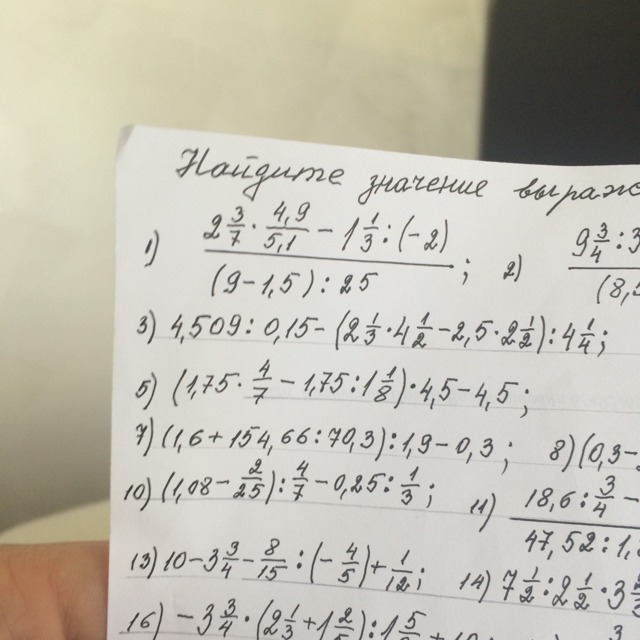 Найдите значение
1) (2 3/7 · 4,9/5,1 − 1 1/3 : (−2)) / ((9−1,5) : 25) ; 2) 9 3/4 : 3 / (8,5
3) 4,509 : 0,15 − (2 1/3 · 4 1/2 − 2,5 · 2 1/2) : 4 1/4;
5) (1,75 · 4/7 − 1,75 : 1 1/8) · 4,5 − 4,5;
7) (1,6 + 154,66 : 70,3) : 1,9 − 0,3 ; 8) (0,3 −
10) (1,08 − 2/25) : 4/7 − 0,25 : 1/3 ; 11) 18,6 : 3/4 − / 47,52 : 1,
13) 10 − 3 3/4 − 8/15 : (− 4/5) + 1/12 ; 14) 7 1/2 : 2 1/2 · 3
16) −3 3/4 · (2 1/3 + 1 2/5) : 1